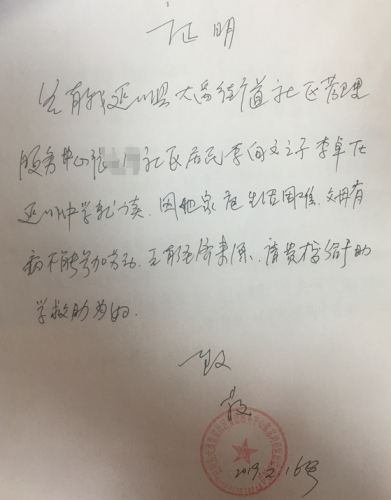 证明
兹有我延川县大禹街道社区管理
服务中心张 社区居民李向文之子李卓在
延川中学就读、因他家庭生活困难、父母有
病不能参加劳动、无有经济来源、请贵校给于助
学救助为盼.
致
敬
2019.2.16号